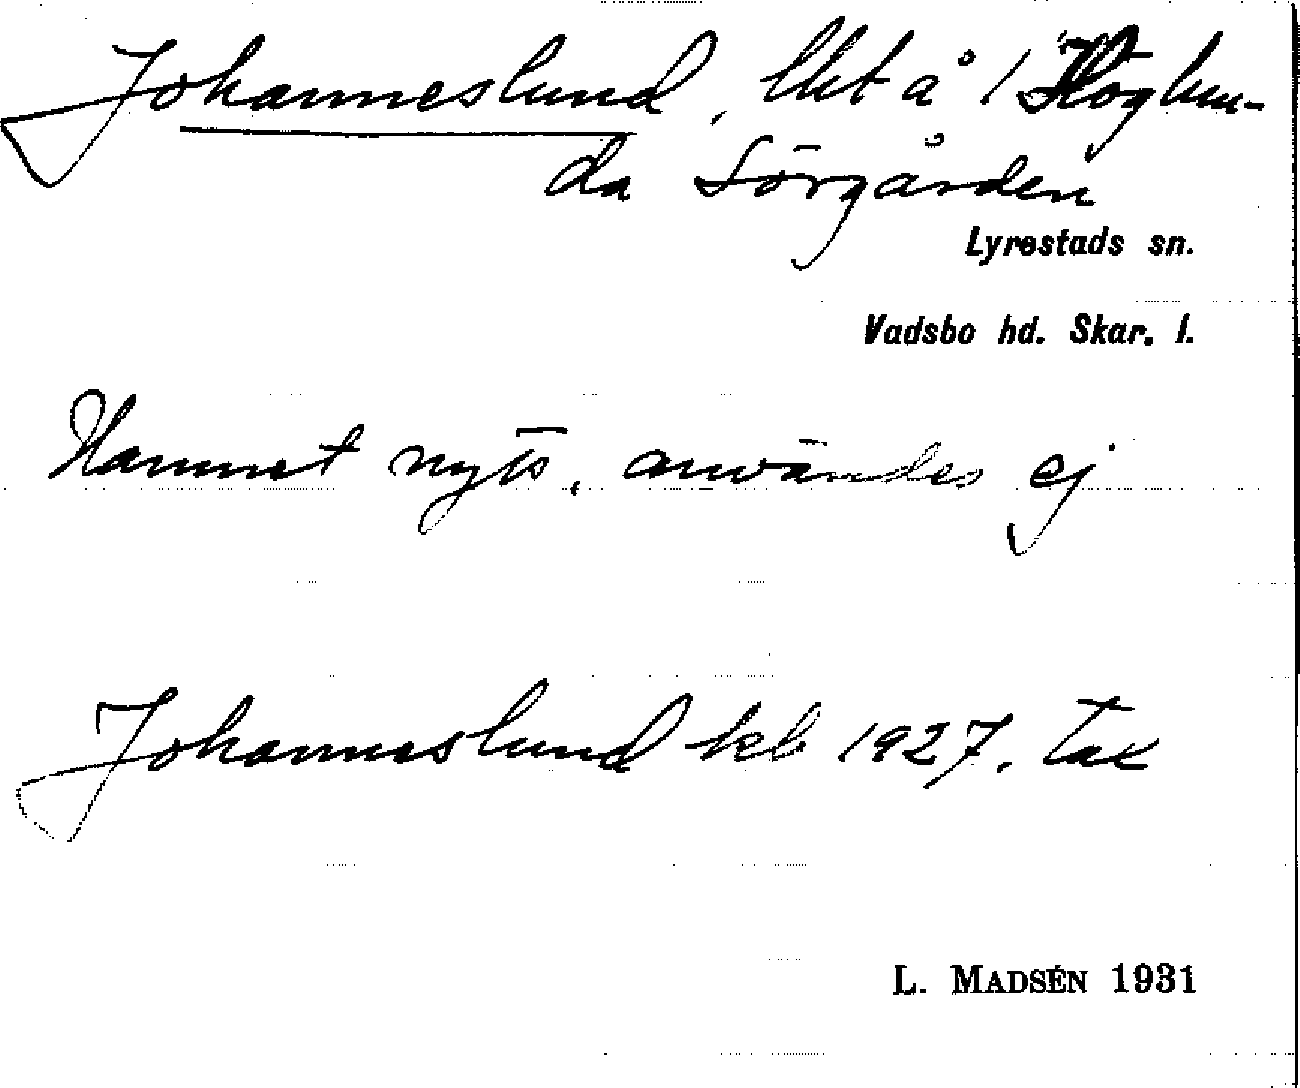 Johanneslund, lht å 1 Högkun-
da Sörgården
Lyrestads sn.
Vadsbo hd. Skar. l.
Namnet nytt, användes ej
Johanneslund kb 1927, tax
L. MADSÉN 1931